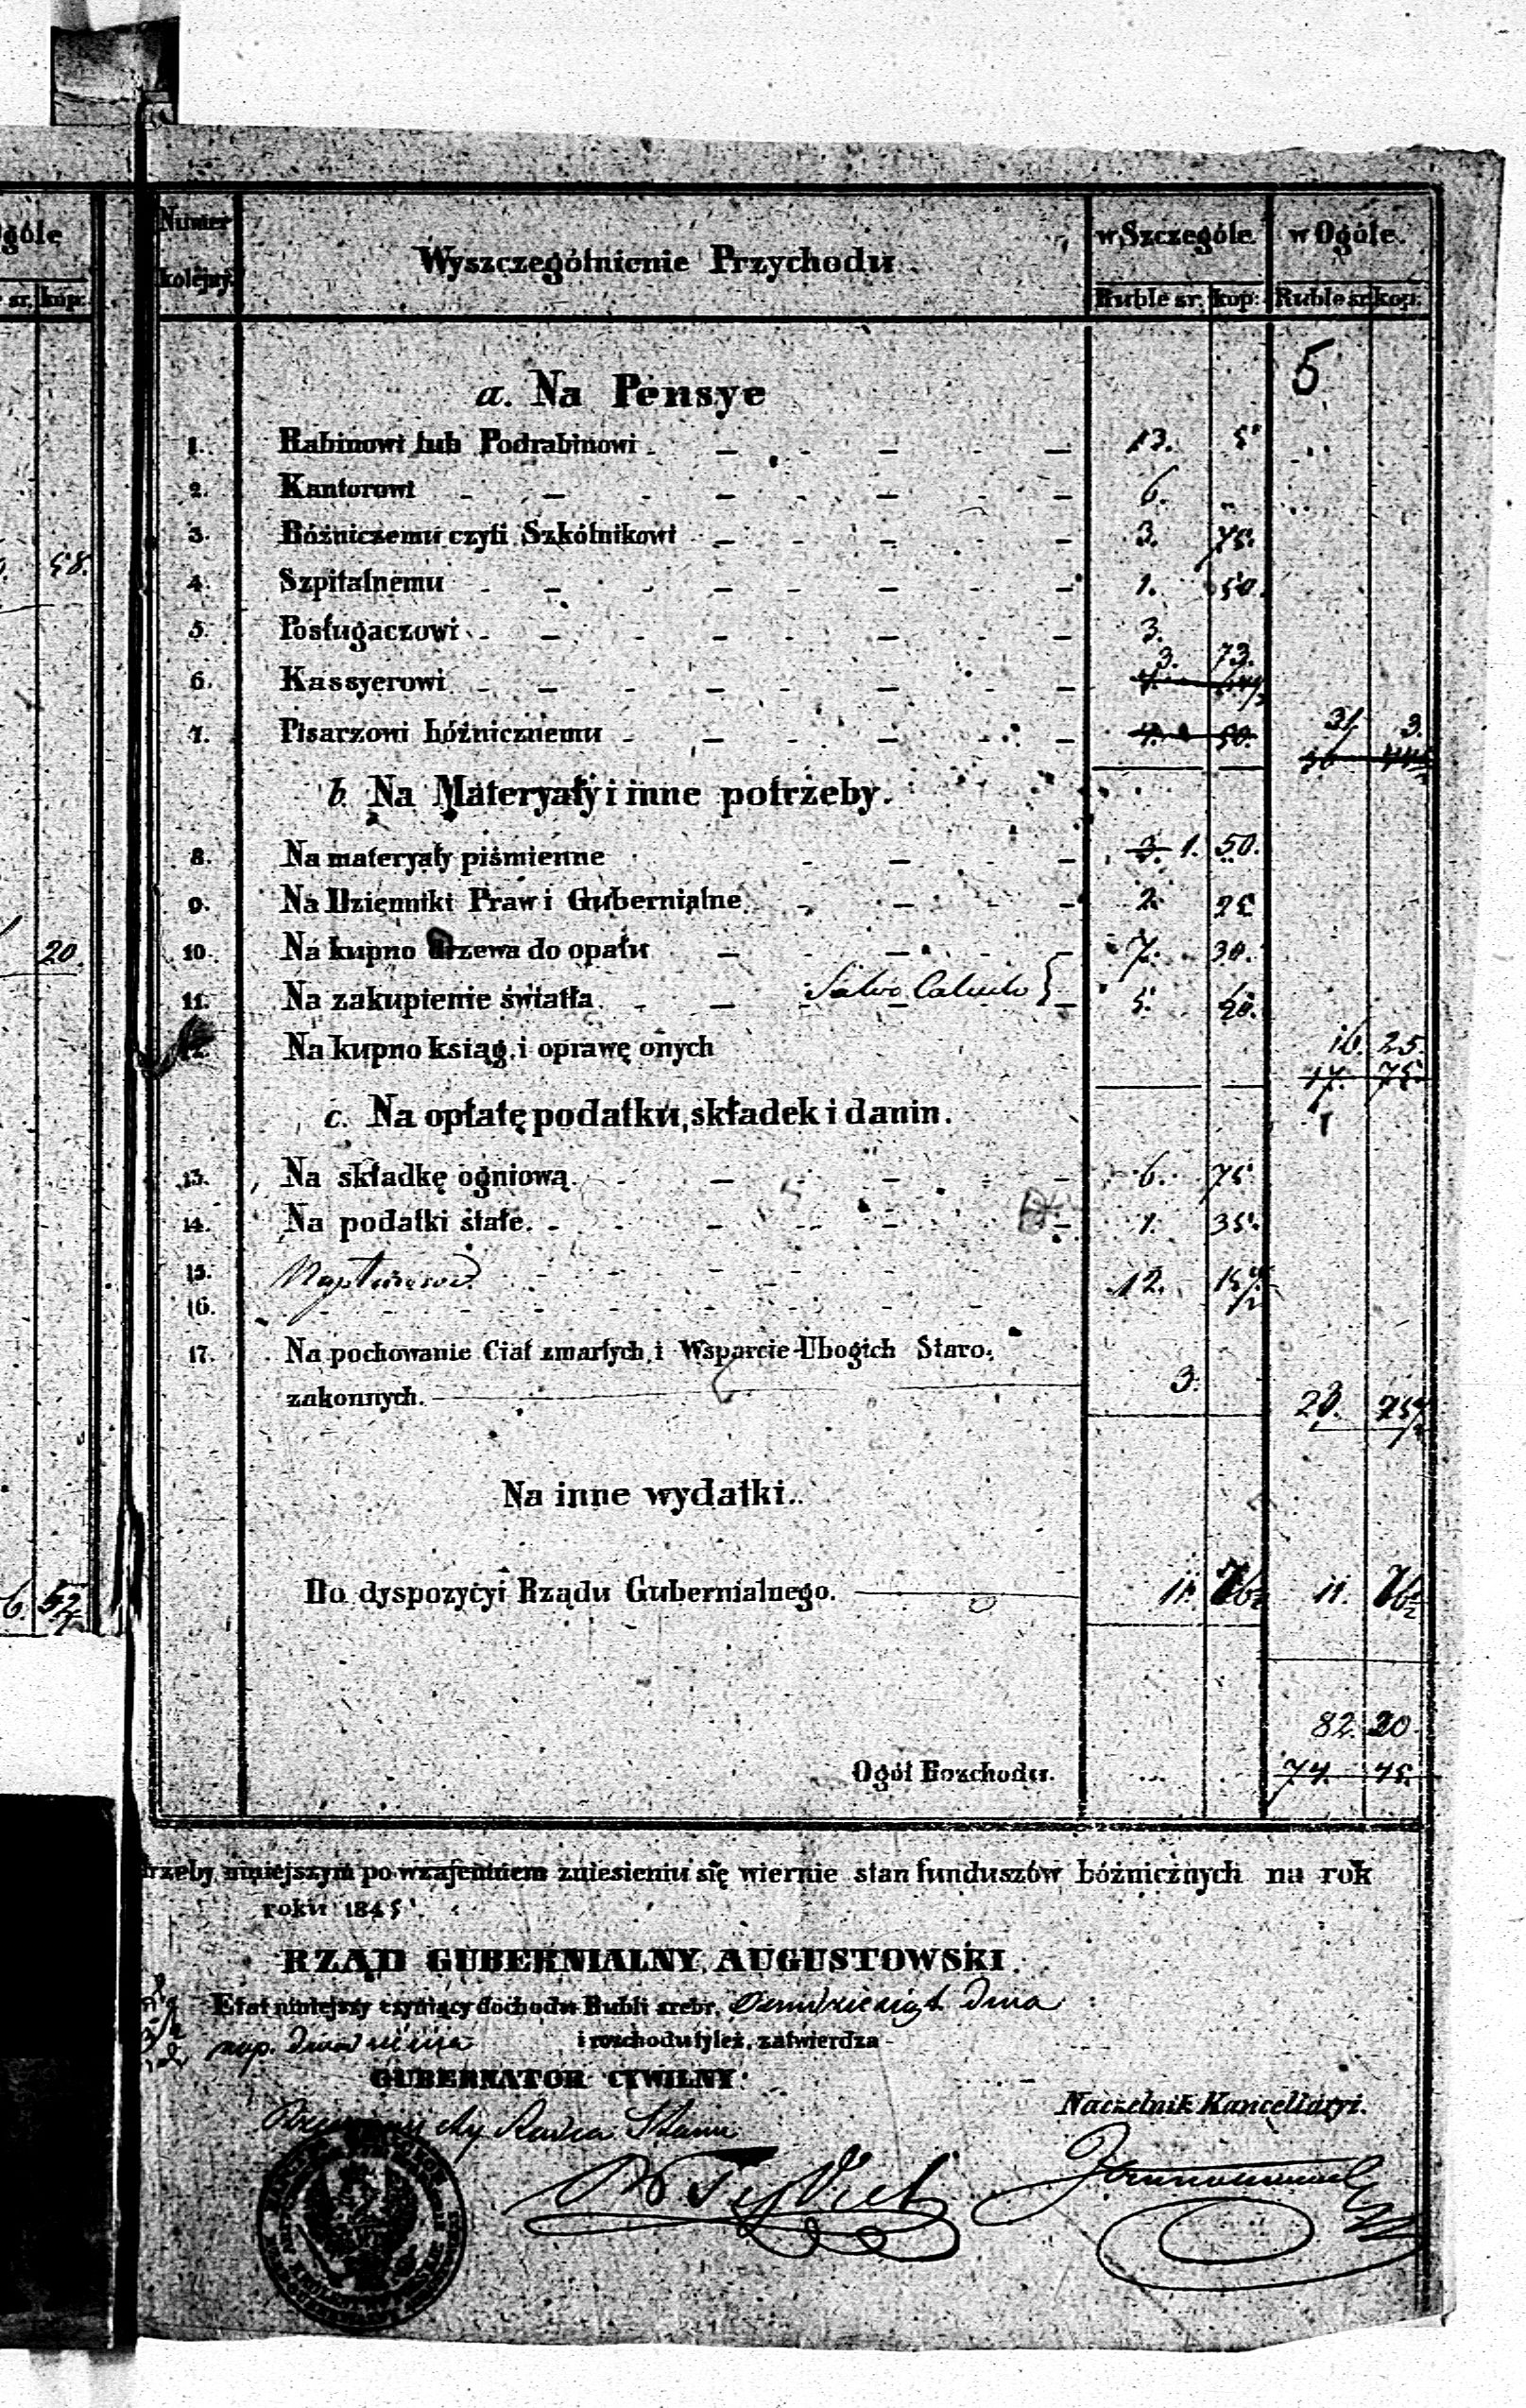 gółe
sr. kop:
58.
20.
6. 52
Numer kolejny.
Wyszczególnienie Przychodu
w Szczególe. w Ogóle.
Ruble sr. kop: Ruble sr. kop:
5
a. Na Pensye
1. Rabinowi lub Podrabinowi 13. 5
2. Kantorowi 6. "
3. Bóżniczemu czyli Szkólnikowi 3. 75.
4. Szpitalnemu 1. 50.
5. Posługaczowi 3.
3. 73.
6. Kassyerowi
31. 3.
7. Pisarzowi bóżnicznemu 4. 50.
b. Na Materyały i inne potrzeby.
8. Na materyały piśmienne 3. 1. 50.
9. Na Dzienniki Praw i Gubernialne 2. 25
10. Na kupno drzewa do opału 7. 30.
11. Na zakupienie światła Salvo Calculo } 5. 20.
12. Na kupno ksiąg i oprawę onych 16. 25.
17. 75.
c. Na opłatę podatku, składek i danin.
13. Na składkę ogniową 6. 75
14. Na podatki stałe. 1. 35.
15. 12. 15 1/2
16.
17. Na pochowanie Ciał zmarłych i Wsparcie Ubogich Staro-
zakonnych. 3. 23. 25 1/2
Na inne wydatki..
Do dyspozycyi Rządu Gubernialnego. 11. 76½ 11. 76½
82. 20
Ogół Rozchodu. 74. 45.
trzeby niniejszym po wzajemnem zniesieniu się wiernie stan funduszów bóżnicznych na rok
roku 1845.
RZĄD GUBERNIALNY AUGUSTOWSKI.
Etat niniejszy czyniący dochodu Rubli srebr. Osmdziesiąt dwa
kop. dwadzieścia i rozchodu tyleż, zatwierdza
GUBERNATOR CYWILNY
Rzeczywisty Radca Stanu
Naczelnik Kancellaryi.